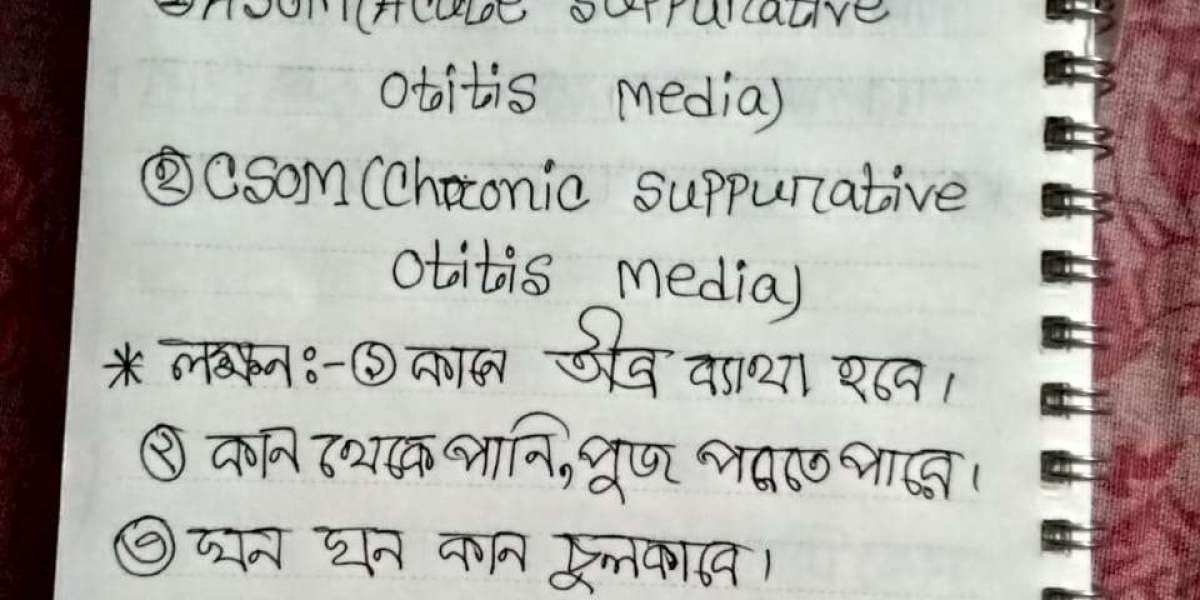 ①ASOM(Acute suppurative
otitis media)
②CSOM(Chronic suppurative
otitis media)
* লক্ষন:-① কানে তীব্র ব্যাথা হবে।
② কান থেকে পানি, পুজ পরতে পারে।
③ ঘন ঘন কান চুলকাবে।